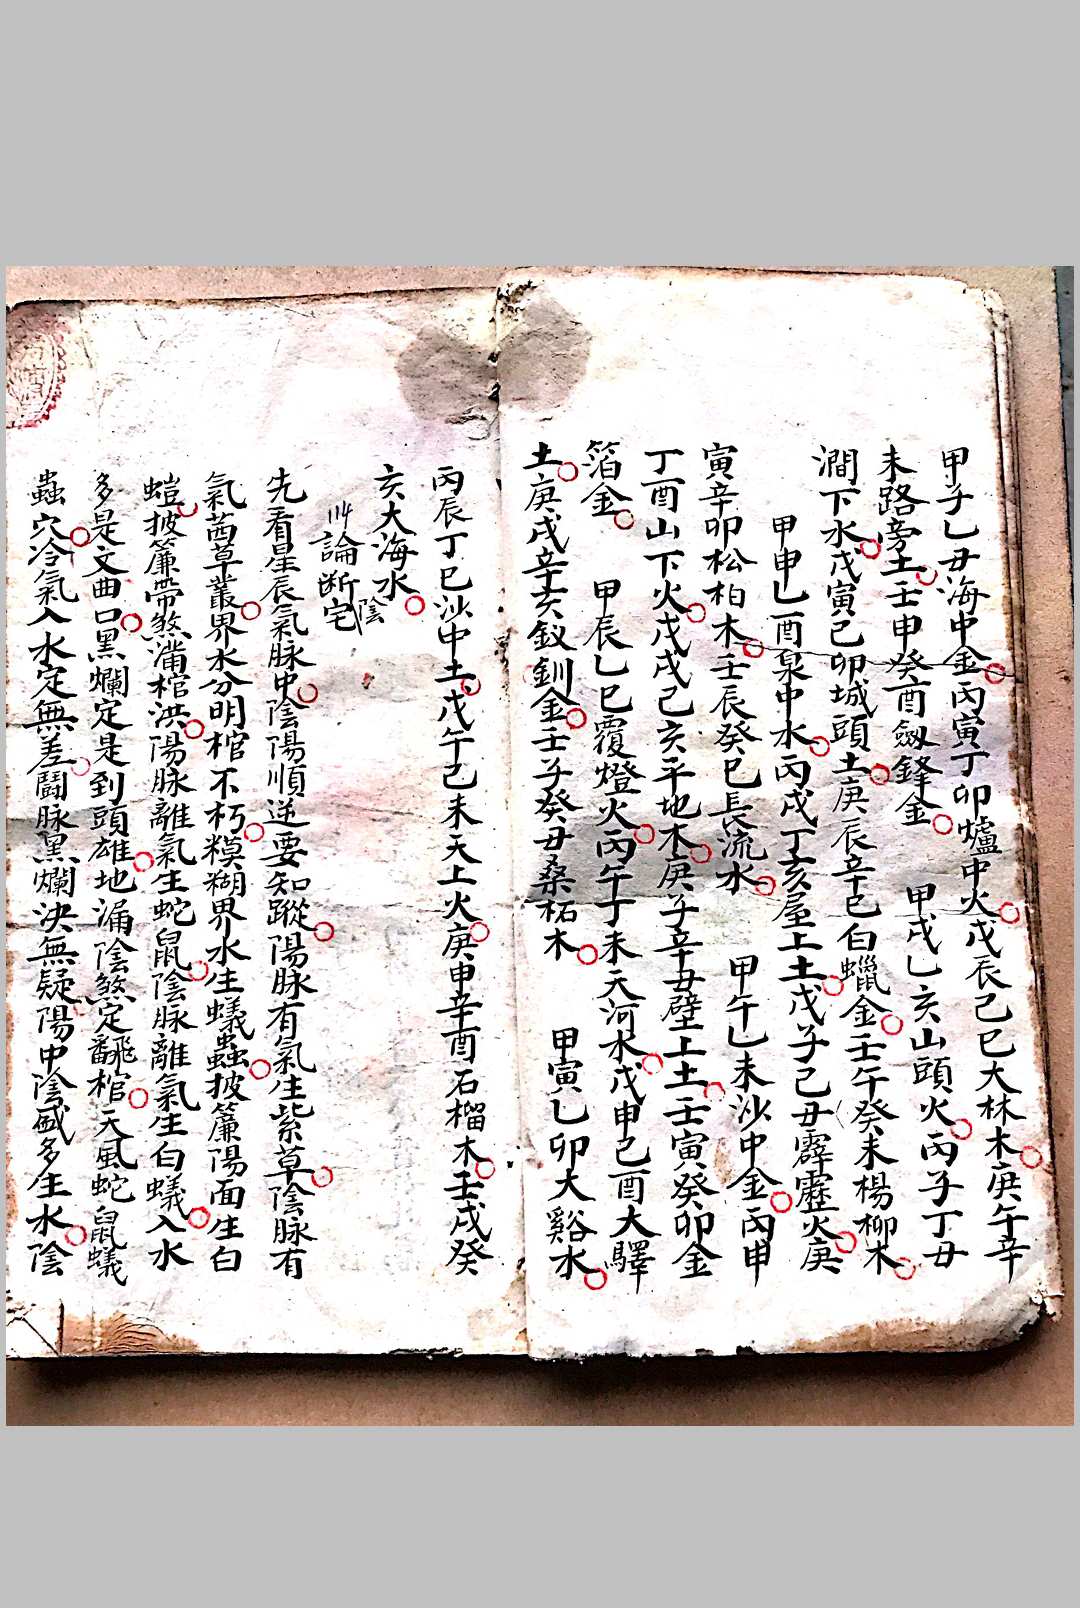 甲子乙丑海中金丙寅丁卯爐中火戊辰己巳大林木庚午辛
未路旁土壬申癸酉劔鋒金 甲戌乙亥山頭火丙子丁丑
澗下水戊寅己卯城頭土庚辰辛巳白蠟金壬午癸未楊柳木
甲申乙酉泉中水丙戌丁亥屋上土戊子己丑霹靂火庚
寅辛卯松柏木壬辰癸巳長流水 甲午乙未沙中金丙申
丁酉山下火戊戌己亥平地木庚子辛丑壁上土壬寅癸卯金
箔金 甲辰乙巳覆燈火丙午丁未天河水戊申己酉大驛
土庚戌辛亥釵釧金壬子癸丑桑柘木 甲寅乙卯大谿水
丙辰丁巳沙中土戊午己未天上火庚申辛酉石榴木壬戌癸
亥大海水
論断陰宅
先看星辰氣脉中陰陽順逆要知蹤陽脉有氣生紫草陰脉有
氣茜草叢界水分明棺不朽糢糊界水生蟻蟲披簾陽面生白
螘披簾帶煞滿棺洪陽脉離氣生蛇鼠陰脉離氣生白蟻入水
多是文曲口黑爛定是到頭雄地漏陰煞定翻棺天風蛇鼠蟻
蟲穴冷氣入水定無差鬪脉黑爛決無疑陽中陰盛多生水陰